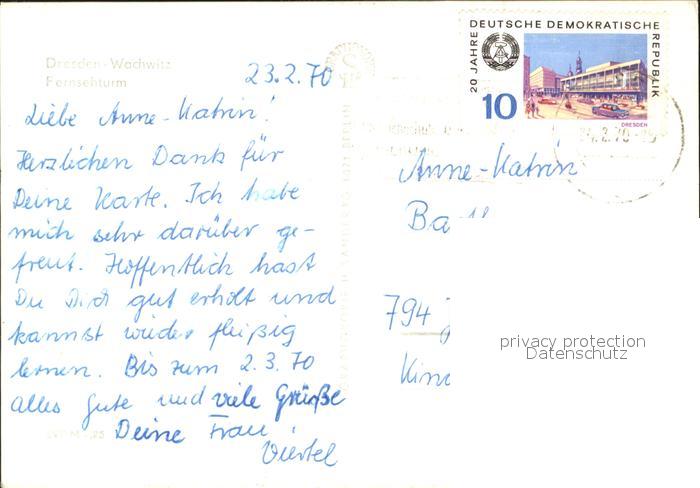 Dresden-Wachwitz
Fernsehturm
23.2.70
Liebe Anne-Katrin!
Herzlichen Dank für
Deine Karte. Ich habe
mich sehr darüber ge-
freut. Hoffentlich hast
Du Dich gut erholt und
kannst wieder fleißig
lernen. Bis zum 2.3.70
alles Gute und viele Grüße
Deine Frau
Viertel
20 JAHRE DEUTSCHE DEMOKRATISCHE REPUBLIK
10
DRESDEN
24.2.70
Anne-Katrin
Ba
794
privacy protection
Datenschutz